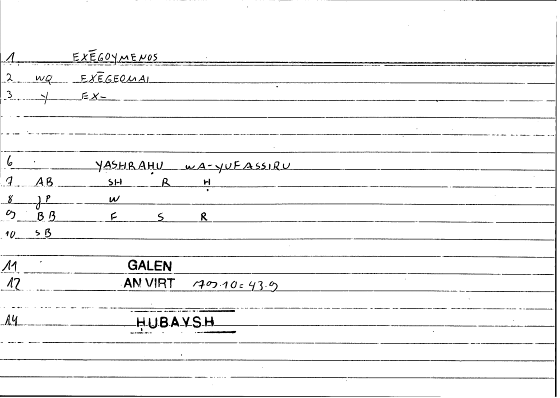 1 EXĒGOYMENOS
2 WQ EXĒGEOMAI
3 Y EX-
6 YASHRAḤU WA-YUFASSIRU
7 AB SH R Ḥ
8 JP W
9 BB F S R
10 SB
11 GALEN
12 AN VIRT 709.10=43.9
14 ḤUBAYSH